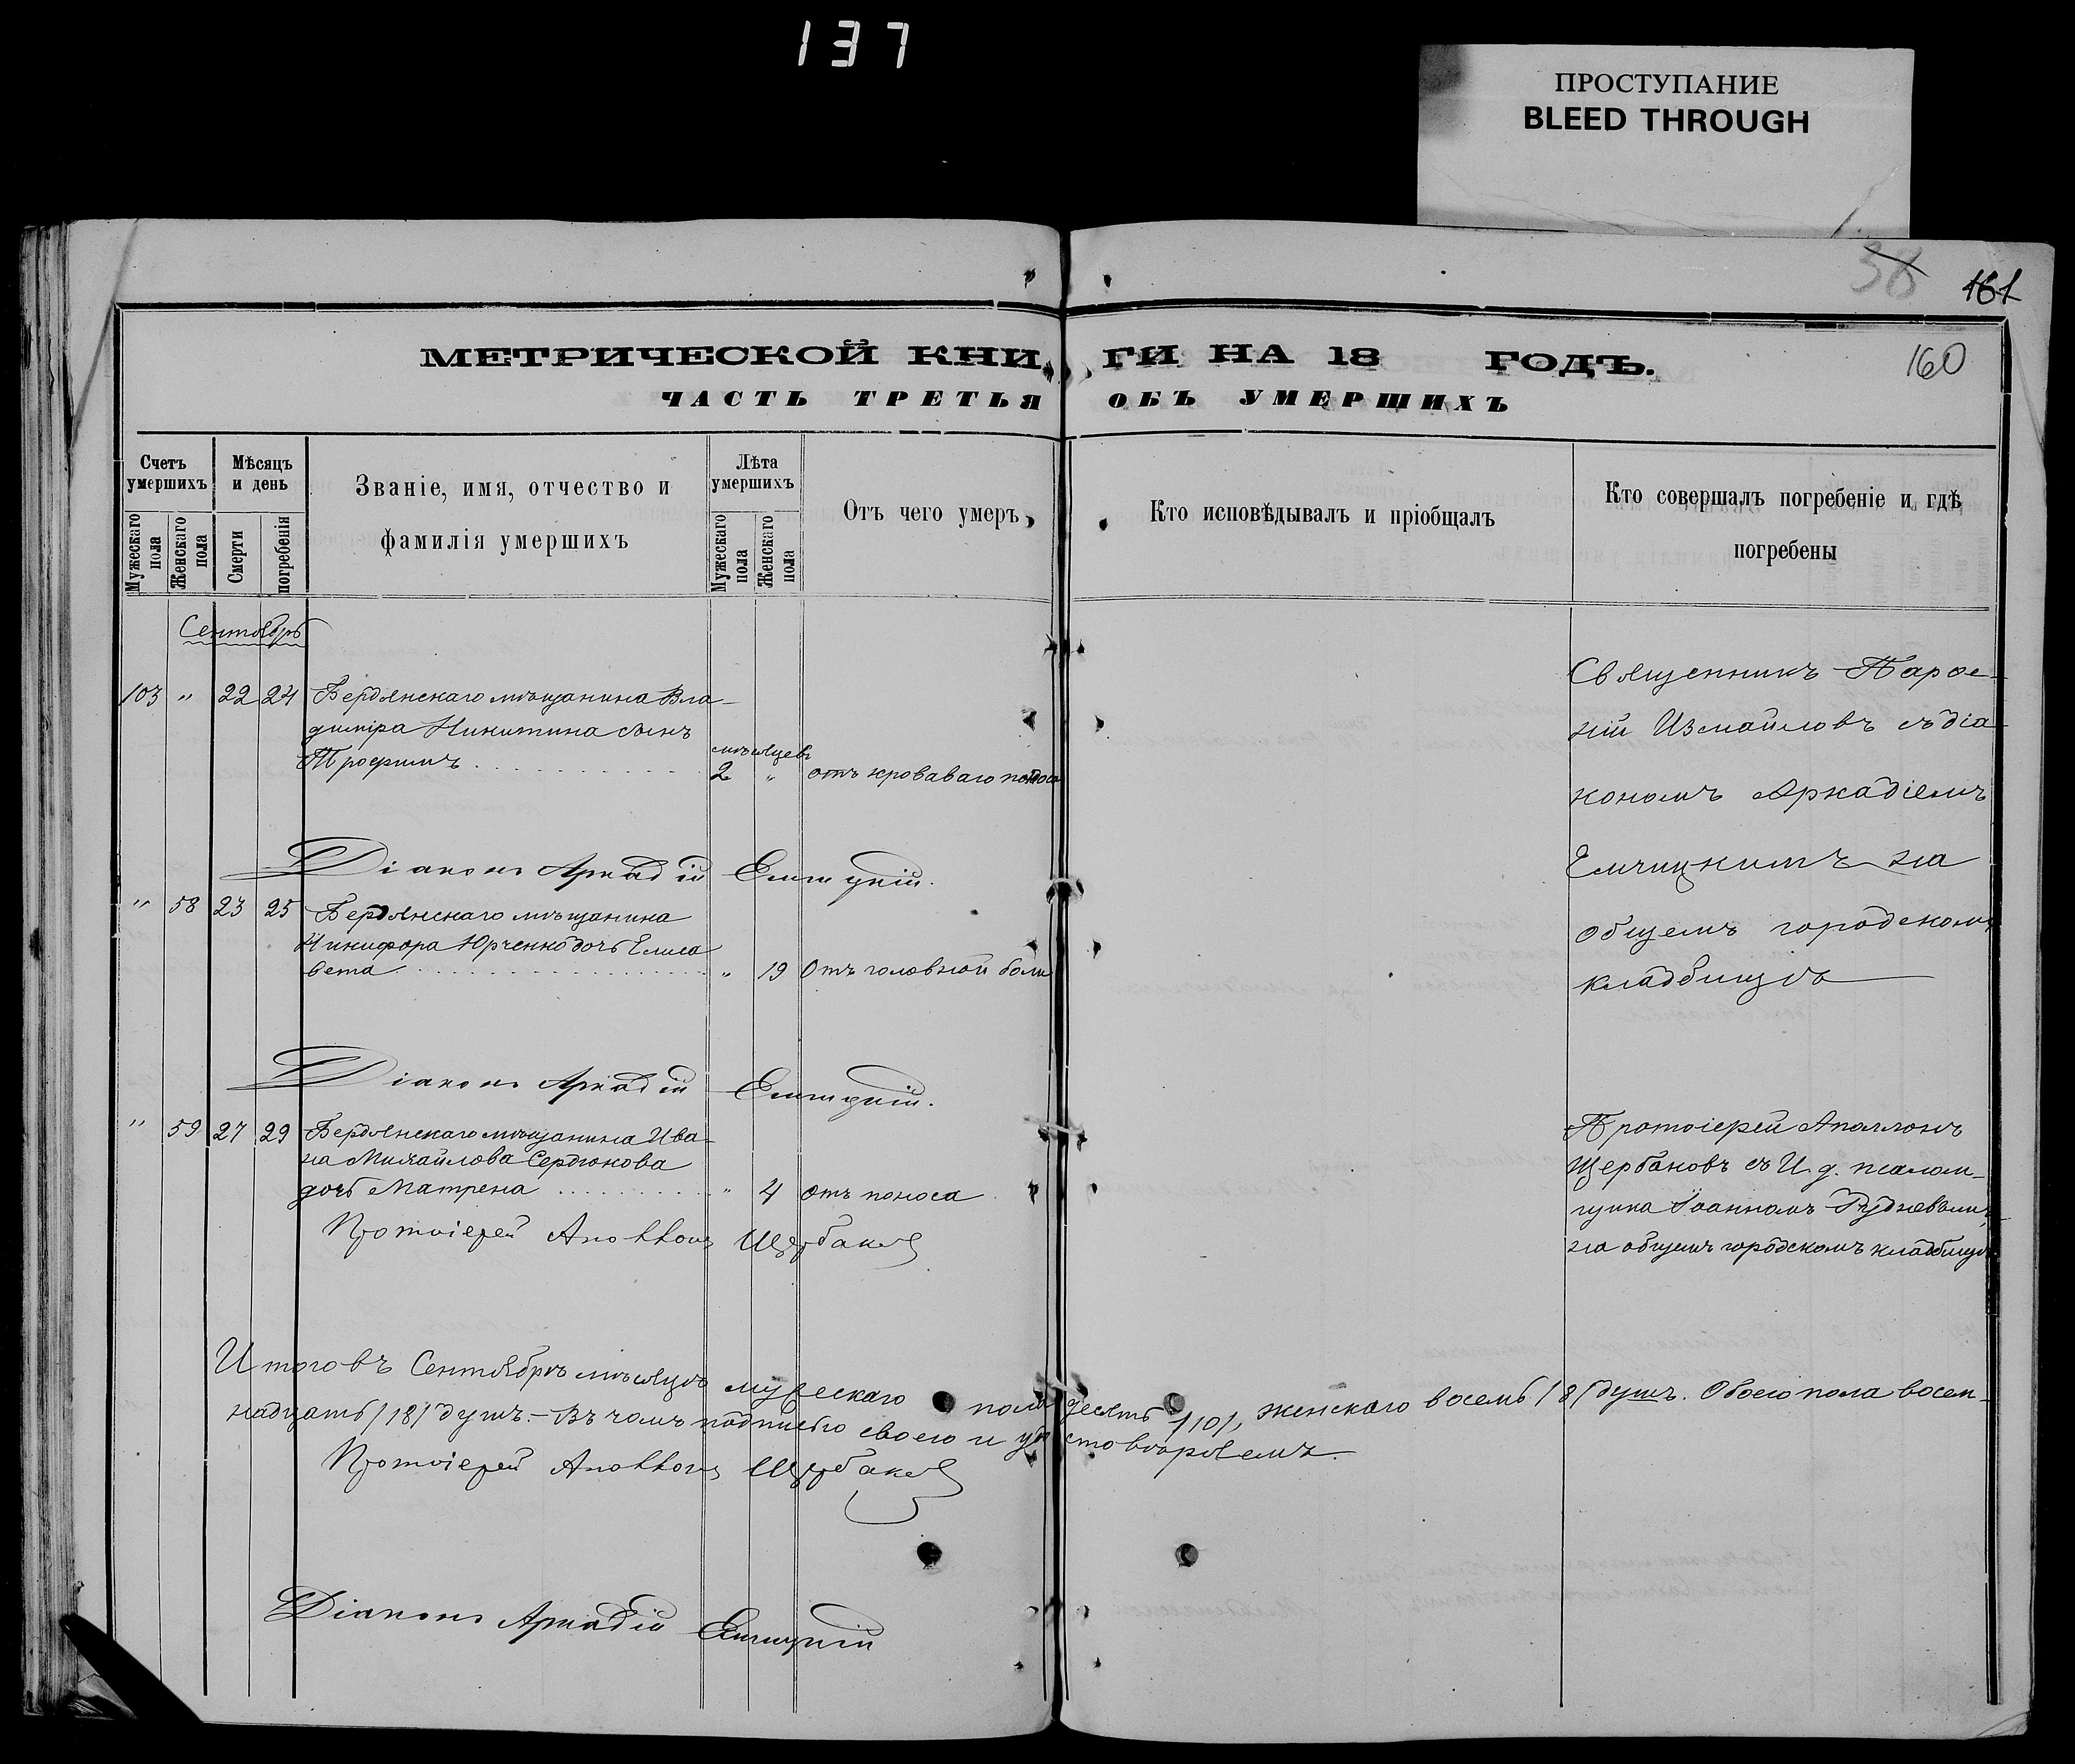 137
ПРОСТУПАНИЕ
BLEED THROUGH
38
161
160
МЕТРИЧЕСКОЙ КНИГИ НА 18 ГОДЪ.
ЧАСТЬ ТРЕТЬЯ ОБЪ УМЕРШИХЪ
Счетъ умершихъ
Мужескаго пола
Женскаго пола
Мѣсяцъ и день
Смерти
погребенія
Званіе, имя, отчество и
фамилія умершихъ
Лѣта умершихъ
Мужескаго пола
Женскаго пола
Отъ чего умеръ
Кто исповѣдывалъ и пріобщалъ
Кто совершалъ погребеніе и гдѣ
погребены
Сентябрь
103 " 22 24 Бердянскаго мѣщанина Вла-
диміра Никитина сынъ
Трофимъ
мѣсяцевъ
2 " отъ кроваваго поноса
Діаконъ Аркадій Емчицкій.
" 58 23 25 Бердянскаго мѣщанина
Никифора Юрченко дочь Елиса
вета " 19 Отъ головной боли
Священникъ Парфе-
ній Измайловъ съ діа
кономъ Аркадіемъ
Емчицкимъ на
общемъ городскомъ
кладбищѣ
Діаконъ Аркадій Емчицкій.
" 59 27 29 Бердянскаго мѣщанина Ива-
на Михайлова Сердюкова
дочь Матрена " 4 отъ поноса
Протоіерей Аполлонъ Щербаковъ
Протоіерей Аполлонъ
Щербаковъ съ И. д. псалом-
щика Іоанномъ Рудневымъ,
на общемъ городскомъ кладбищѣ
Итого въ Сентябрѣ мѣсяцѣ мужескаго пола десять /10/, женскаго восемь /8/ душъ. Обоего пола восем-
надцать /18/ душъ. - Въ чемъ подписью своею и удостовѣряемъ.
Протоіерей Аполлонъ Щербаковъ
Діаконъ Аркадій Емчицкій